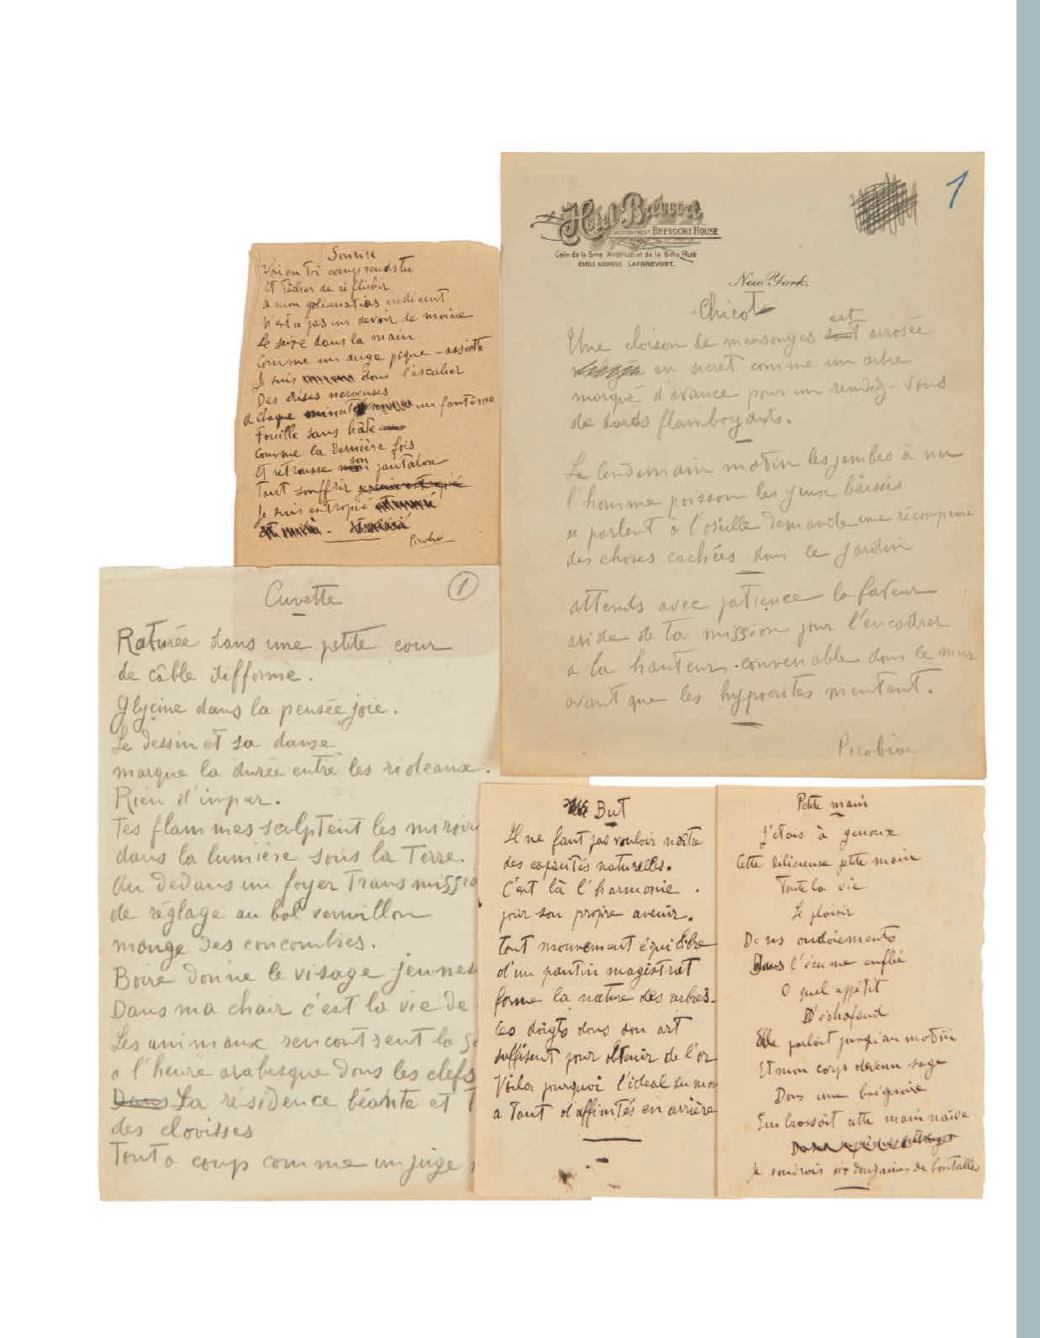 Sourire
Vois en toi comprends tu
Et tâcher de réfléchir
à mon galimatias indécent
N'est a pas un devoir de moine
Le sexe dans la main
Comme un ange pique-assiette
Je suis dans l'escalier
Des crises nerveuses
à chaque un fantôme
Fouille sans hâte
Comme la dernière fois
Et retrousse son pantalon
Tout souffrir
Je suis estropié
Picabia
Hotel Brévort
BREVOORT HOUSE
Coin de la 5me AVENUE et de la 8me Rue
CABLE ADDRESS LAFBREVORT.
New York.
1
Chicot
Une cloison de mensonges est arrosée
en secret comme un arbre
marqué d'avance pour un rendez-vous
de bords flamboyants.
Le lendemain matin les jambes à nu
l'homme poisson les yeux baissés
se parlent à l'oreille demande une récompense
des choses cachées dans le jardin
attends avec patience la faveur
avide de ta mission pour l'encadrer
a la hauteur convenable dans le mur
avant que les hypocrites mentent.
Picabia
Cuvette
1
Raturée dans une petite cour
de câble difforme.
Glycine dans la pensée joie.
Le dessin et sa danse
marque la durée entre les rideaux.
Rien d'impur.
Tes flammes sculptent les miroirs
dans la lumière sous la Terre.
Au dedans un foyer Transmissio
de réglage au bol vermillon
mange des concombres.
Boire donne le visage jeunes
Dans ma chair c'est la vie de
Les animaux rencontrent la
a l'heure arabesque dans les clefs
Dans La résidence béante et
des clovisses
Tout a coup comme un juge
But
Il ne faut pas vouloir naître
des capacités naturelles.
C'est là l'harmonie.
pour son propre avenir.
Tout mouvement équilibre
d'un pantin magistrat
forme la nature des arbres.
Les doigts dans son art
suffisent pour obtenir de l'or
Voila pourquoi l'ideal
a Tant d'affinités en arrière
Petite main
J'étais à genoux
Cette délicieuse petite main
Toute la vie
Le plaisir
Dans ondoiements
Dans l'écume enflée
O quel appétit
D'échafaud
Elle parlait jusqu'au matin
Et mon corps devenu sage
Dans une baignoire
Embrassait cette main naïve
Je voudrais six douzaines de